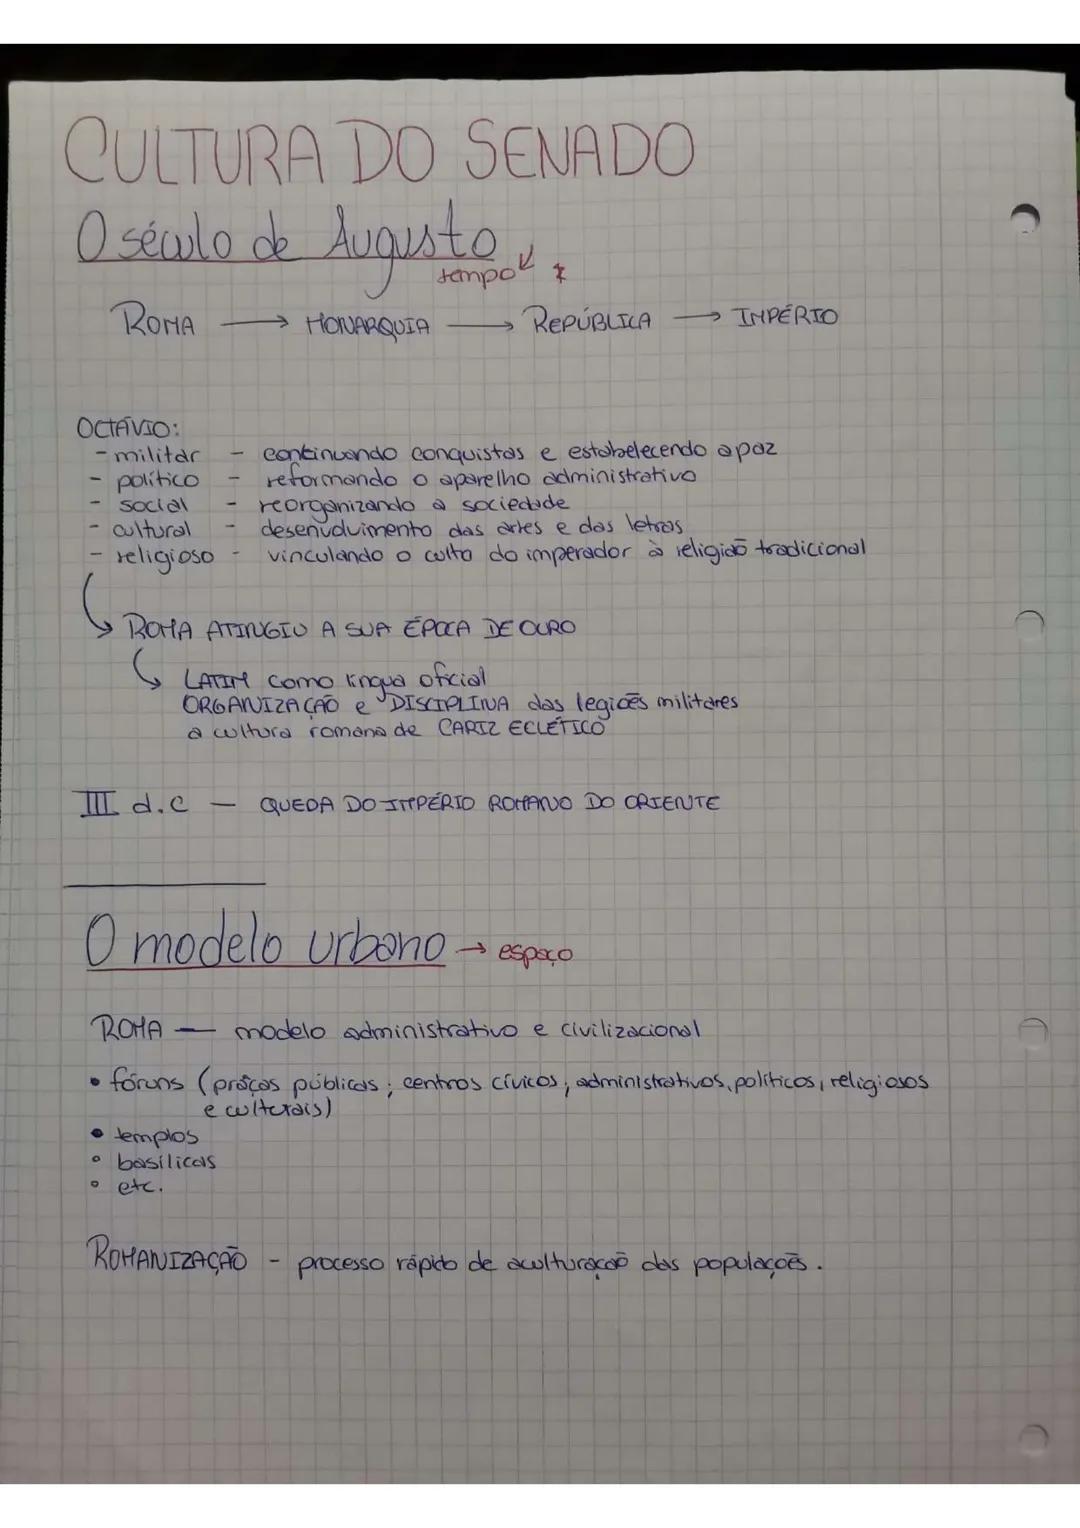 CULTURA DO SENADO
O século de Augusto
tempo *
ROMA → MONARQUIA → REPÚBLICA → IMPÉRIO
OCTÁVIO:
- militar - continuando conquistas e estabelecendo a paz
- político - reformando o aparelho administrativo
- social - reorganizando a sociedade
- cultural - desenvolvimento das artes e das letras
- religioso - vinculando o culto do imperador à religião tradicional
ROMA ATINGIU A SUA ÉPOCA DE OURO
LATIM como língua oficial
ORGANIZAÇÃO e DISCIPLINA das legiões militares
a cultura romana de CARIZ ECLÉTICO
III d.C — QUEDA DO IMPÉRIO ROMANO DO ORIENTE
O modelo urbano → espaço
ROMA — modelo administrativo e civilizacional
• fóruns (praças públicas; centros cívicos, administrativos, políticos, religiosos
e culturais)
• templos
• basílicas
• etc.
ROMANIZAÇÃO - processo rápido de aculturação das populações.